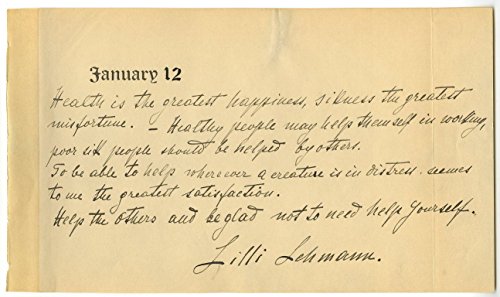 January 12
Health is the greatest happiness, sikness the greatest
misfortune. – Healthy people may help themself in working,
poor sik people should be helped by others.
To be able to help wherever a creature is in distress. seems
to me the greatest satisfaction.
Help the others and be glad not to need help yourself.
Lilli Lehmann.